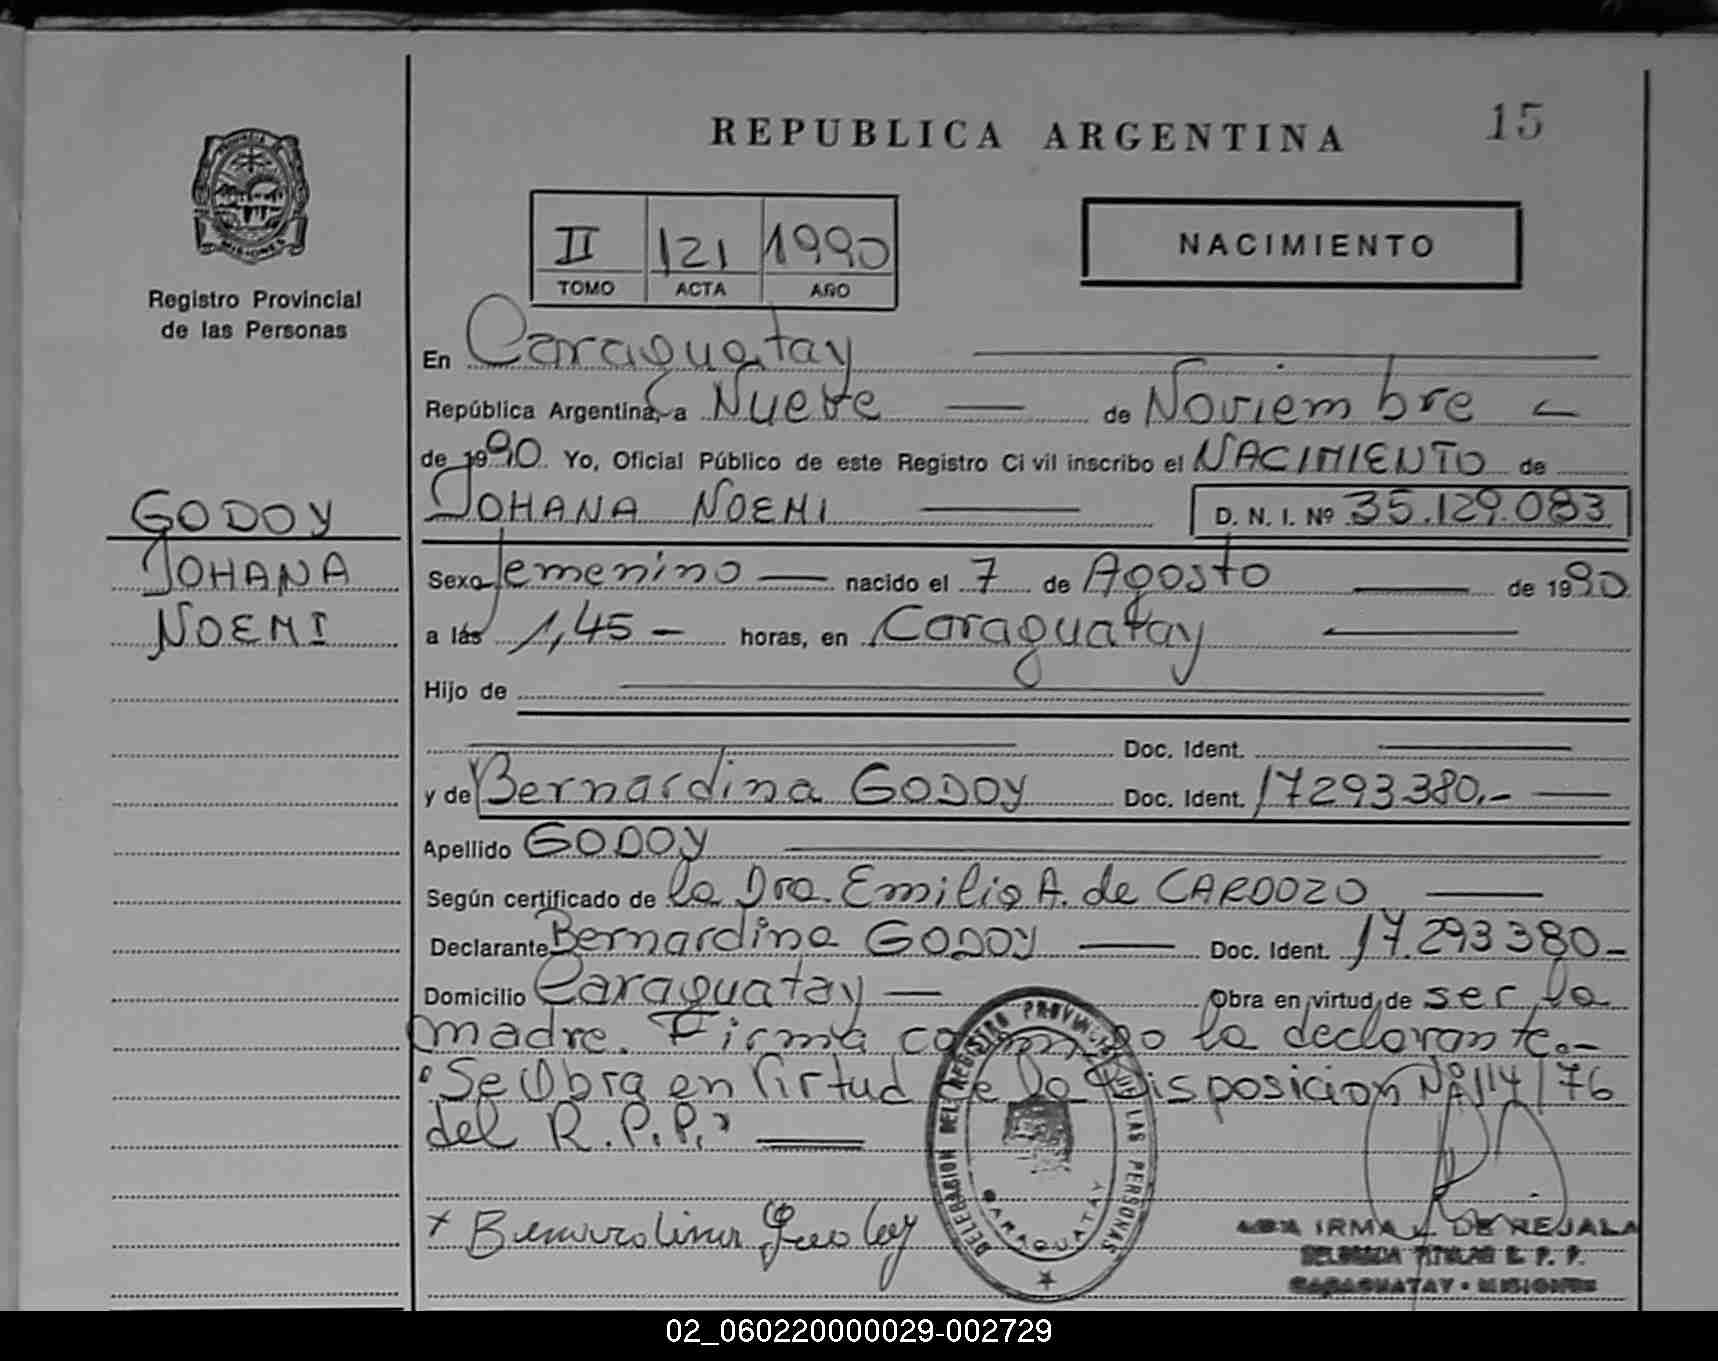 15
REPUBLICA ARGENTINA
MISIONES
Registro Provincial
de las Personas
II 121 1990
TOMO ACTA AÑO
NACIMIENTO
En Caraguatay
República Argentina, a Nueve de Noviembre
de 1990. Yo, Oficial Público de este Registro Civil inscribo el NACIMIENTO de
GODOY
JOHANA
NOEMI
JOHANA NOEMI D. N. I. Nº 35.129.083
Sexo femenino nacido el 7 de Agosto de 1990
a las 1,45 - horas, en Caraguatay
Hijo de
Doc. Ident.
y de Bernardina GODOY Doc. Ident. 17293380.-
Apellido GODOY
Según certificado de la Dra. Emilia A. de CARDOZO
Declarante Bernardina GODOY Doc. Ident. 17.293380-
Domicilio Caraguatay Obra en virtud de ser la
madre. Firma conmigo la declarante.-
"Se Obra en Virtud de la Disposicion Nº 114/76
del R.P.P."
DELEGACION DEL REGISTRO PROVINCIAL DE LAS PERSONAS
CARAGUATAY
IRMA DE REJALA
DELEGADA TITULAR R. P. P.
CARAGUATAY - MISIONES
02_060220000029-002729